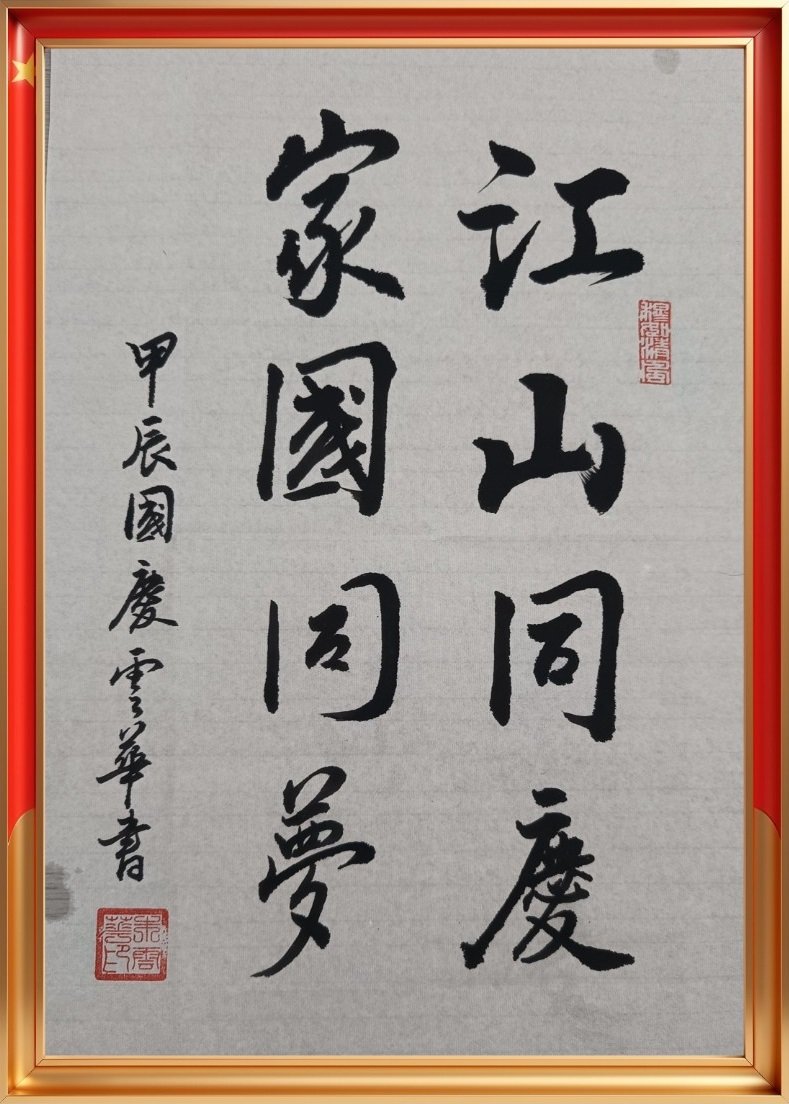 江山同慶
家國同夢
甲辰國慶雲華書